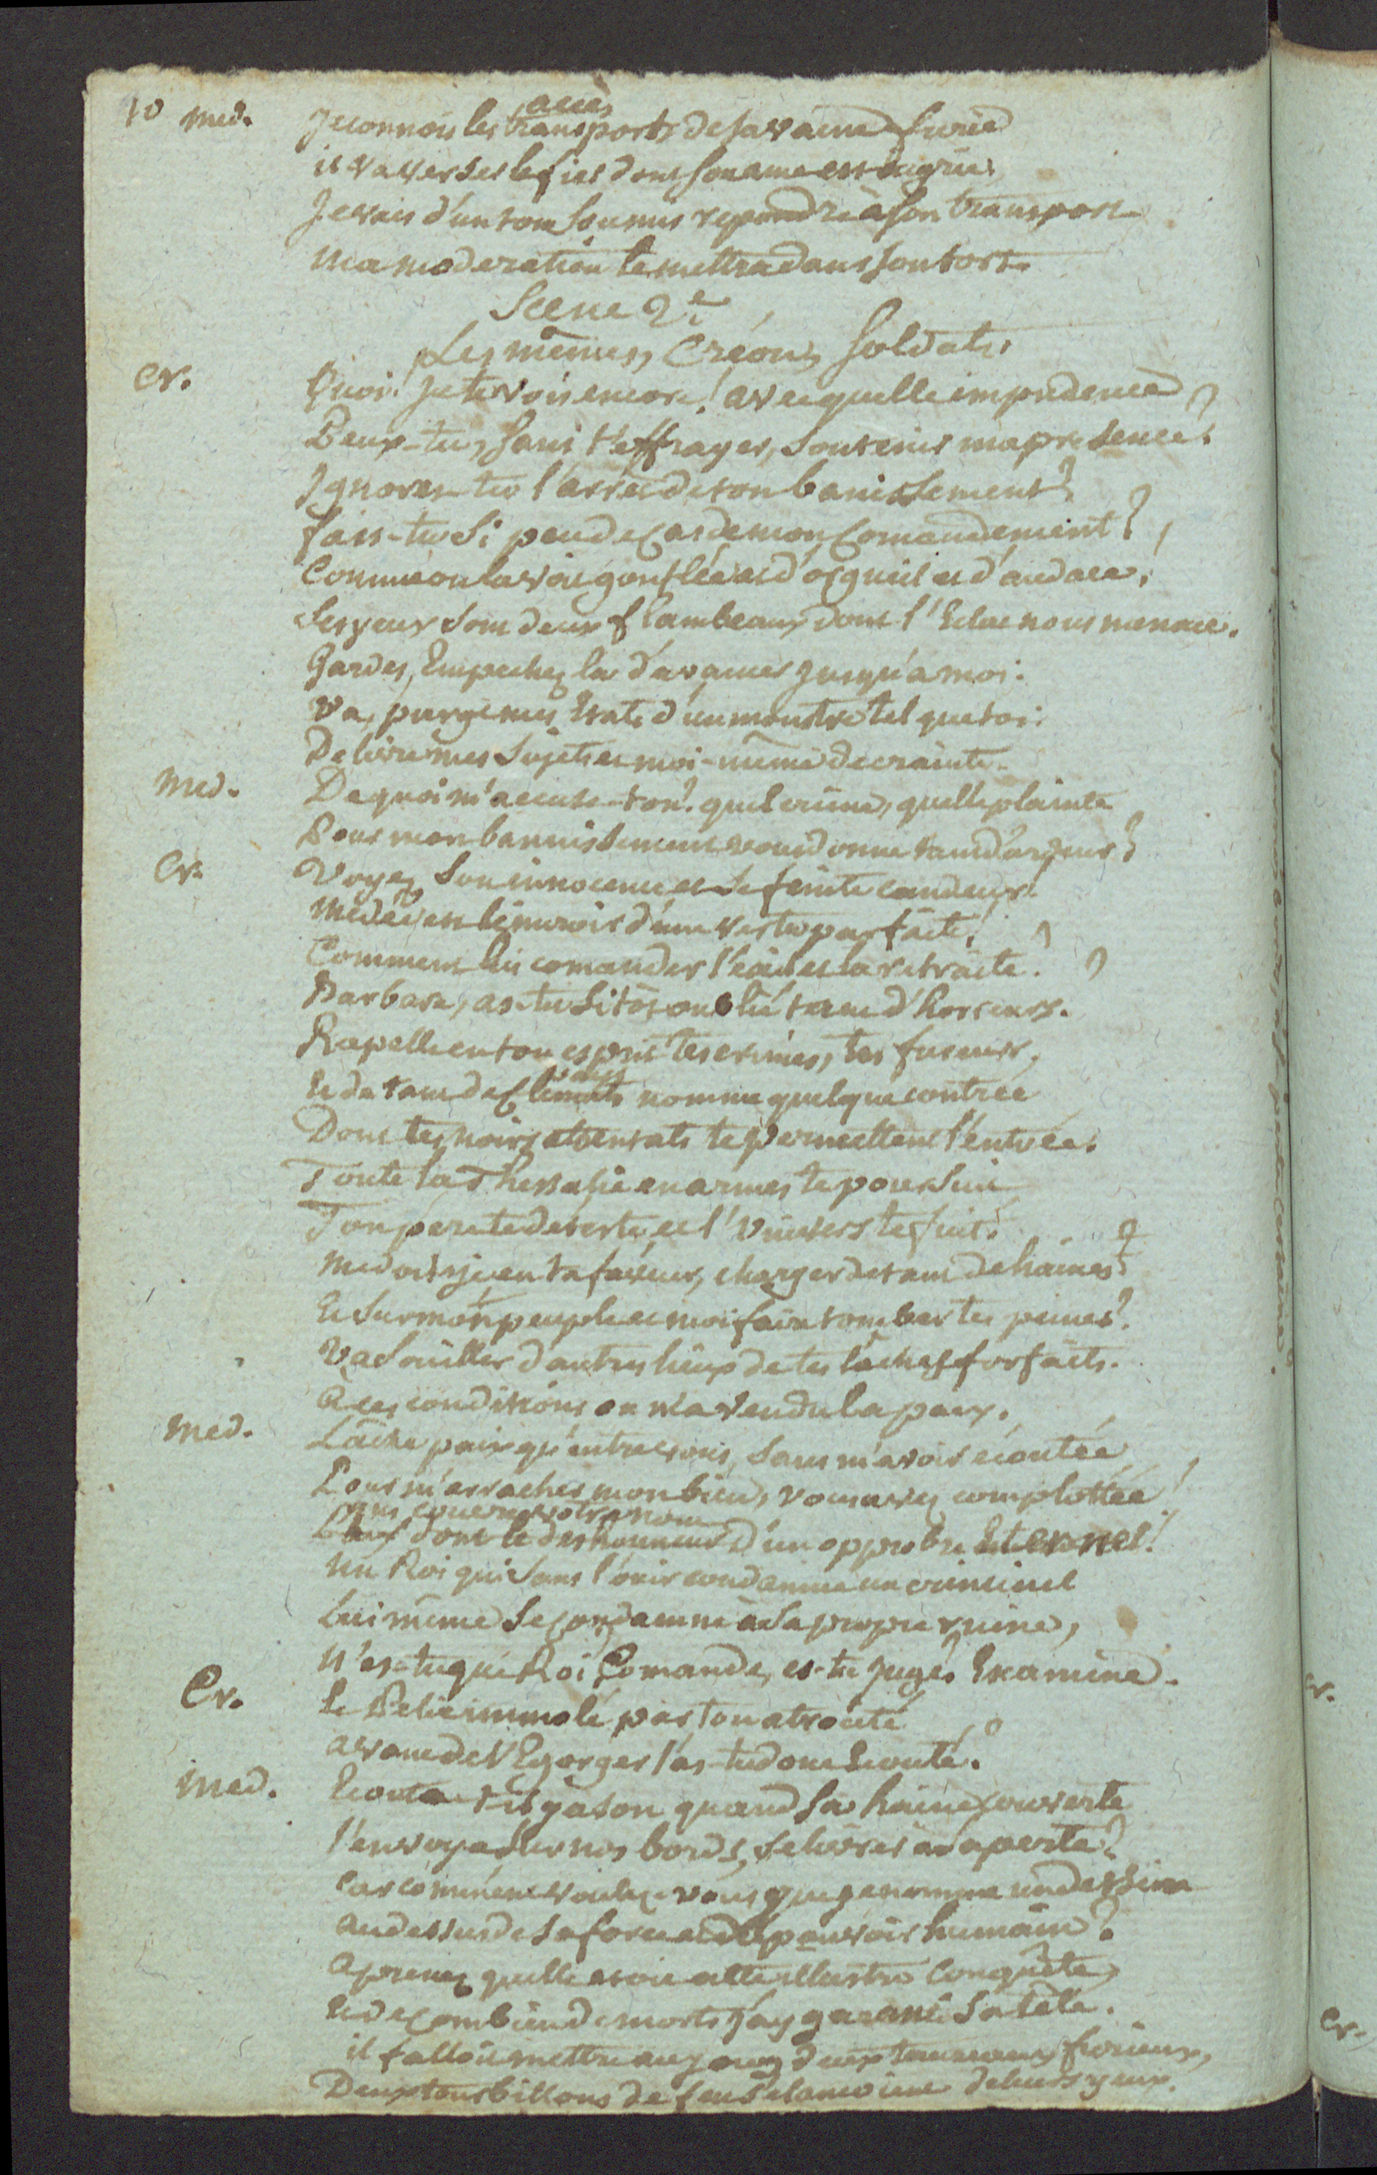 10 med. Je connois les transports de sa vaine furie
accès
il va verser le fiel dont son ame est aigrie
Je vais d'un ton soumis repondre à son transport
ma moderation le mettra dans son tort.
Scene 2e
Les mêmes, Créon, Soldats.
Cr. Quoi! Je te vois encore! avec quelle impudence
Peux-tu, sans t'effrayer, soutenir ma presence?
Ignores-tu l'arret de ton banissement?
fais-tu si peu de cas de mon comandement?
Comme on la voit gonflée et d'orgueil et d'audace,
Ses yeux sont deux flambeaux dont l'Eclat nous menace.
Gardes, Empechez la d'avancer jusqu'à moi.
Va, purge mes Etats d'un monstre tel que toi.
Delivre mes sujets et moi-même de crainte.
Med. De quoi m'accuse-t-on? quel crime, quelle plainte
Pour mon bannissement vous donne tant d'ardeur?
Cr. Voyez son innocence et sa feinte candeur!
Medée est le miroir d'une vertu parfaite,
Comment lui comander l'exil et la retraite?
Barbare, as-tu sitôt oublié tant d'horreurs.
Rapelle en ton esprit tes crimes, tes fureurs,
Et de tant de climats nomme quelque contrée
Dont tes noirs attentats te permettent l'entrée.
Toute la Thessalie en armes te poursuit
Ton pere te deteste, et l'Univers te fuit.
me dois-je en ta faveur, charger de tant de haines?
Et sur mon peuple et moi faire tomber tes peines?
Va souiller d'autres lieux de tes lâches forfaits.
A ces conditions on m'a vendu la paix.
Med. Lâche paix qu'entre vous, sans m'avoir écoutée
Pour m'arracher mon bien, vous avez complottée!
couvre votre nom
dont le deshonneur d'un opprobre Eternel!
Un Roi qui sans l'ouir condamne un criminel
Lui même se condamne à sa propre ruine,
N'es-tu que Roi? Comande, es-tu juge? Examine.
Cr. Et Pelie immolé par ton atrocité
avant de l'Egorger l'as-tu donc Ecouté?
Med. Ecouta t-il jason quand sa haine couverte
l'envoya sur nos bords, se livrer à sa perte?
Car comment voulez-vous que je nomme un dessein
au dessus de sa force et du pouvoir humain?
Aprenez quelle etoit cette illustre conquête
Et de combien de morts j'ay garanti sa tête.
il falloit mettre au joug deux taureaux furieux,
Deux tourbillons de feu s'elancoient de leurs yeux.
Cr.
Cr.